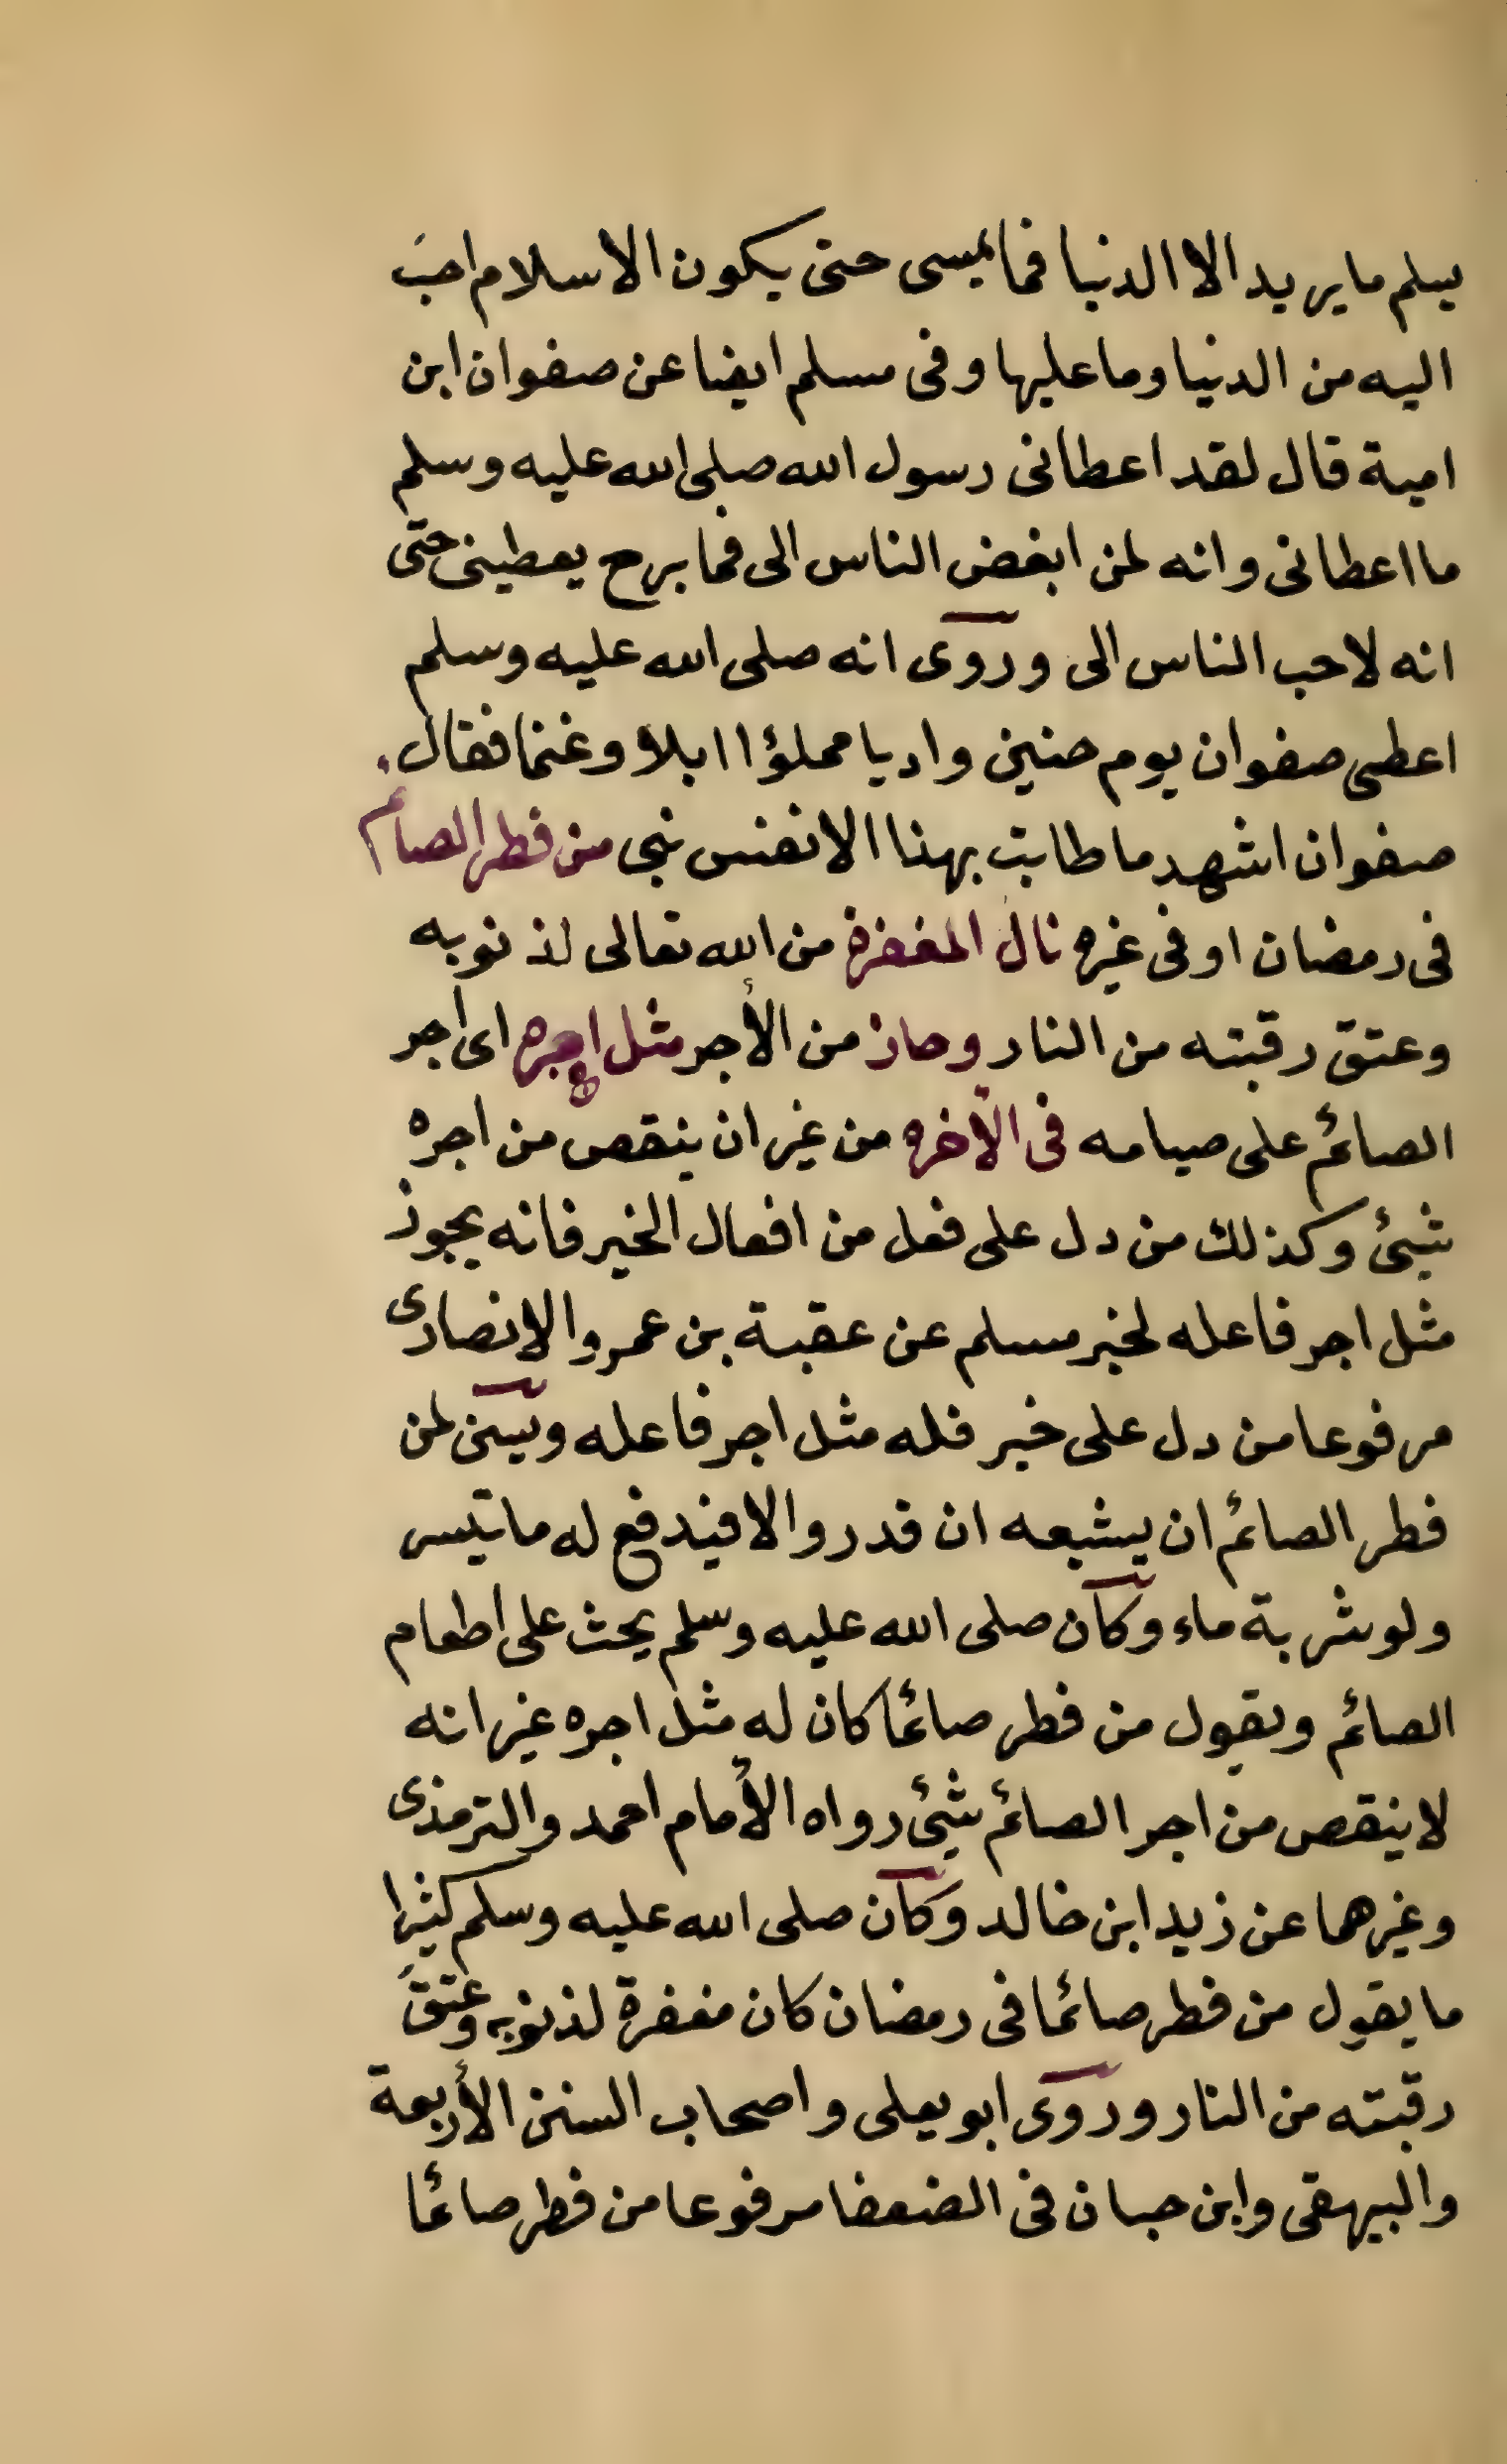 يسلم ما يريد الا الدنيا فما يمسى حتى يكون الاسلام احبَ
اليه من الدنيا وما عليها وفى مسلم ايضا عن صفوان ابن
امية قال لقد اعطانى رسول الله صلى الله عليه وسلم
ما اعطانى وانه لمن ابغض الناس الى فما برح يعطينى حتى
انه لاحب الناس الى وروى انه صلى الله عليه وسلم
اعطى صفوان يوم حنين واديا مملؤا ابلا وغنما فقال
صفوان اشهد ما طابت بهذا الا نفس نبى من فطر الصائم
فى رمضان او فى غيره نال المغفرة من الله تعالى لذنوبه
وعتق رقبته من النار وحاز من الأجر مثل اجره اى اجر
الصائم على صيامه فى الآخره من غير ان ينقص من اجره
شيئ وكذلك من دل على فعل من افعال الخير فانه يحوز
مثل اجر فاعله لخبر مسلم عن عقبة بن عمرو الانصارى
مرفوعا من دل على خير فله مثل اجر فاعله ويسن لمن
فطر الصائم ان يشبعه ان قدر والا فيدفع له ما تيسر
ولو شربة ماء وكان صلى الله عليه وسلم يحث على اطعام
الصائم ويقول من فطر صائما كان له مثل اجره غير انه
لا ينقص من اجر الصائم شيئ رواه الأمام احمد والترمذى
وغيرهما عن زيد ابن خالد وكان صلى الله عليه وسلم كثيرا
ما يقول من فطر صائما فى رمضان كان مغفرة لذنوبه وعتقَ
رقبته من النار وروى ابو يعلى واصحاب السنن الأربعة
والبيهقى وابن حبان فى الضعفا مرفوعا من فطر صائما